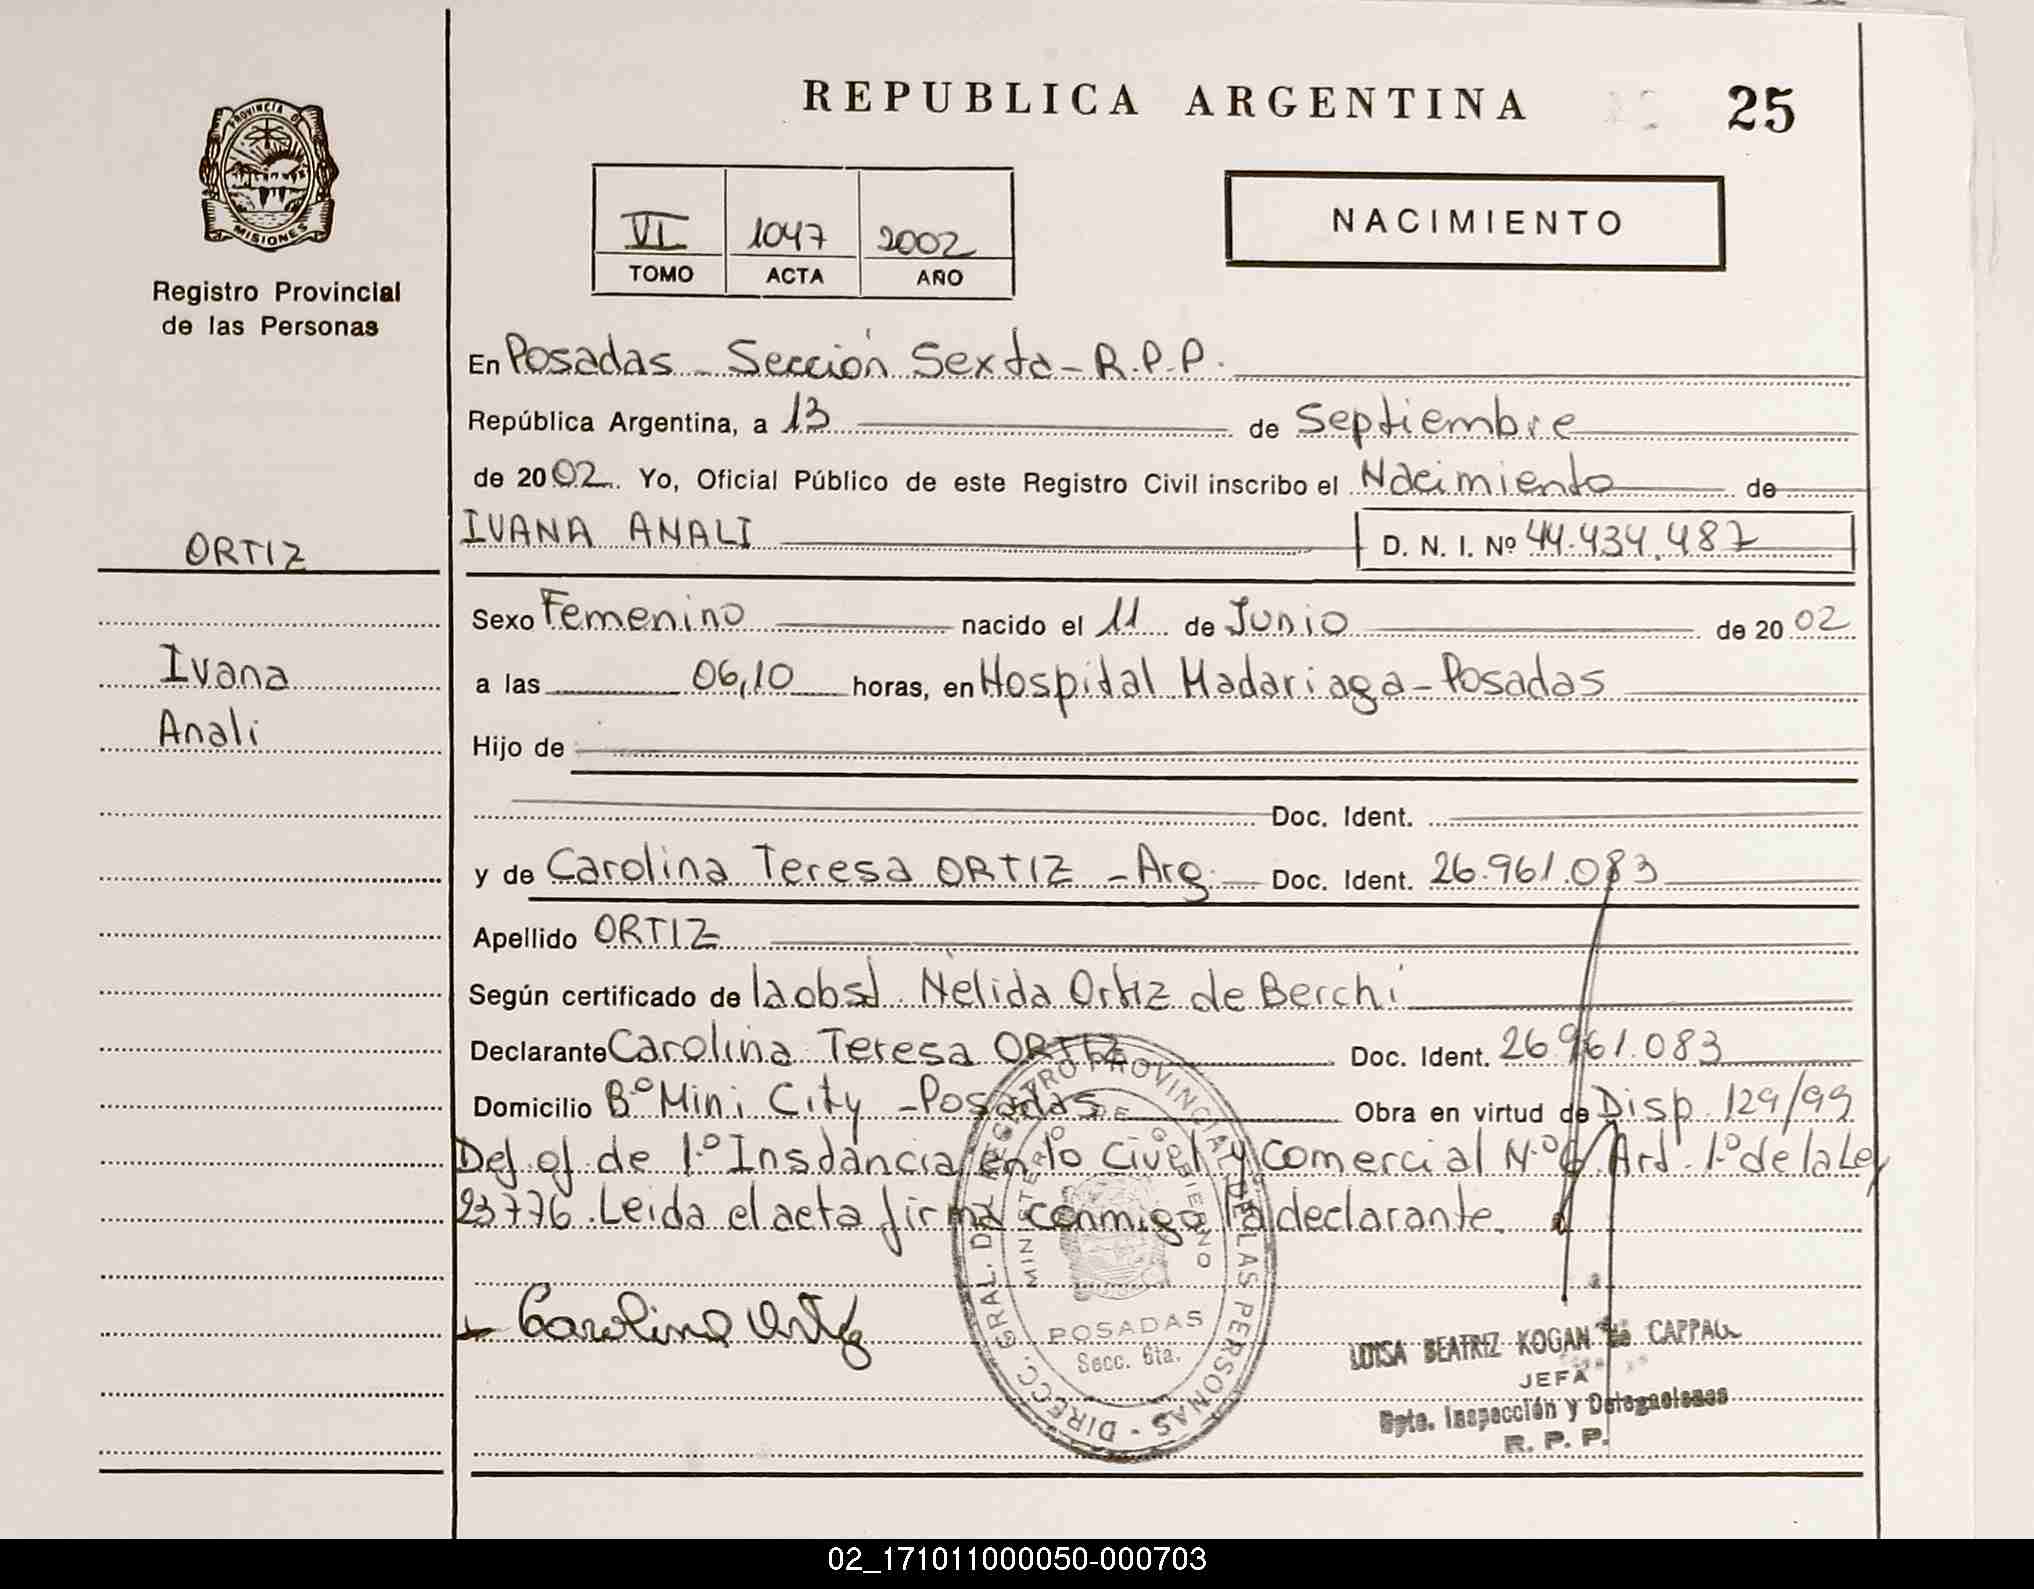 REPUBLICA ARGENTINA
25
PROVINCIA DE
MISIONES
Registro Provincial
de las Personas
VI 1047 2002
TOMO ACTA AÑO
NACIMIENTO
En Posadas - Sección Sexta - R.P.P.
República Argentina, a 13 de Septiembre
de 2002. Yo, Oficial Público de este Registro Civil inscribo el Nacimiento de
IVANA ANALI D. N. I. Nº 44.434.487
ORTIZ
Ivana
Anali
Sexo Femenino nacido el 11 de Junio de 2002
a las 06,10 horas, en Hospital Madariaga - Posadas
Hijo de
Doc. Ident.
y de Carolina Teresa ORTIZ - Arg. Doc. Ident. 26.961.083
Apellido ORTIZ
Según certificado de la obst. Nelida Ortiz de Berchi
Declarante Carolina Teresa ORTIZ Doc. Ident. 26.961.083
Domicilio Bº Mini City - Posadas Obra en virtud de Disp. 129/99
Def. of. de 1.º Instancia en lo Civel y Comercial N.º 6. Art. 1.º de la Ley
23776. Leida el acta firma conmigo la declarante.
Carolina Ortiz
DIRECC. GRAL. DEL REGISTRO PROVINCIAL DE LAS PERSONAS -
MINISTERIO DE GOBIERNO
POSADAS
Secc. 6ta.
LUISA BEATRIZ KOGAN de
JEFA
Dpto. Inspección y Delegaciones
R. P. P.
02_171011000050-000703